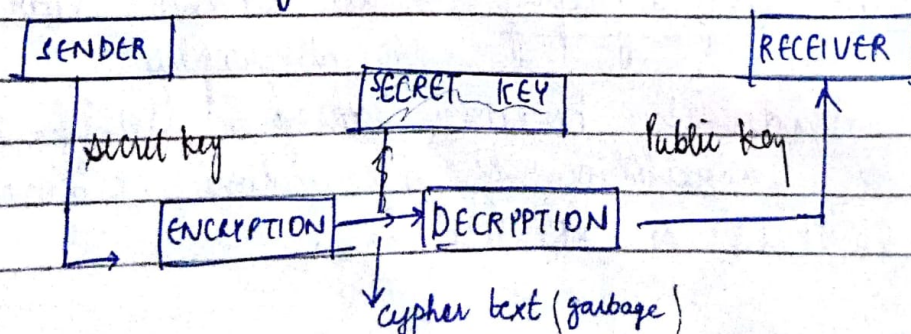 SENDER
RECEIVER
SECRET KEY
secret key
Public key
ENCRYPTION
DECRPPTION
cypher text (garbage)